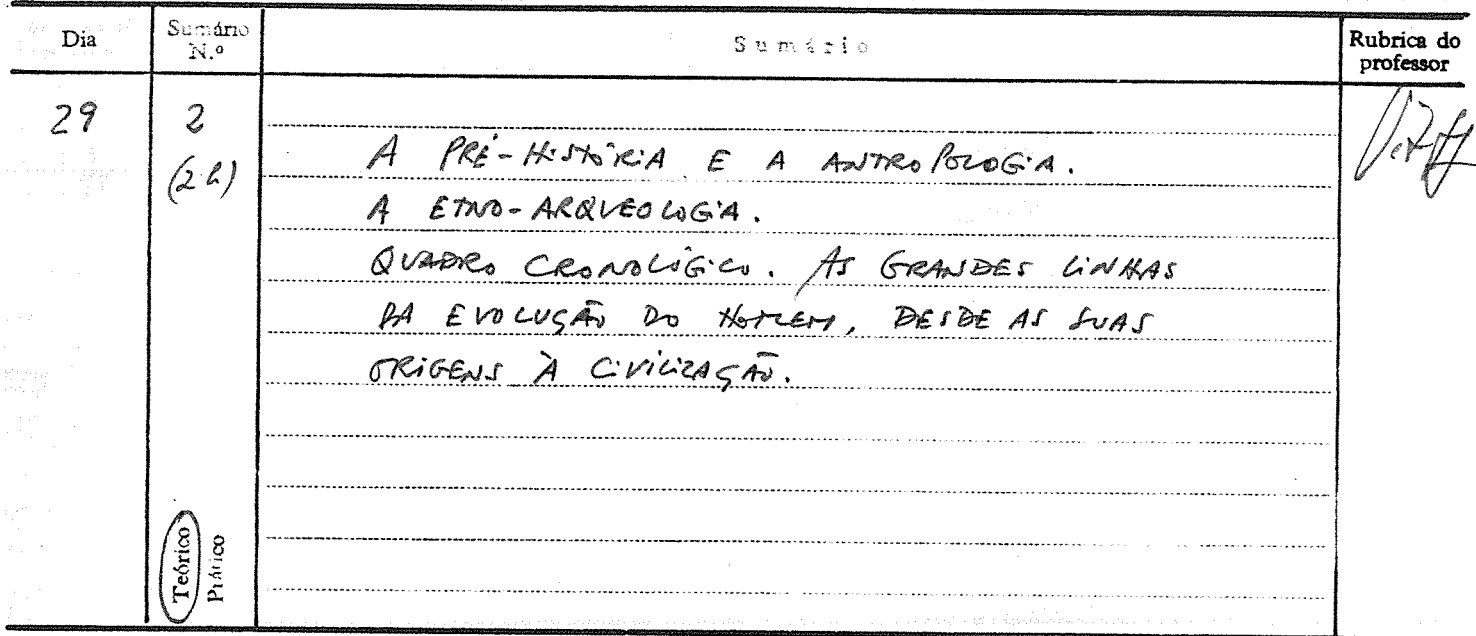 Dia
Sumário N.º
Sumário
Rubrica do professor
29
2
(2 h)
A PRÉ-HISTÓRIA E A ANTROPOLOGIA.
A ETNO-ARQUEOLOGIA.
QUADRO CRONOLÓGICO. AS GRANDES LINHAS
DA EVOLUÇÃO DO HOMEM, DESDE AS SUAS
ORIGENS À CIVILIZAÇÃO.
Teórico
Prático